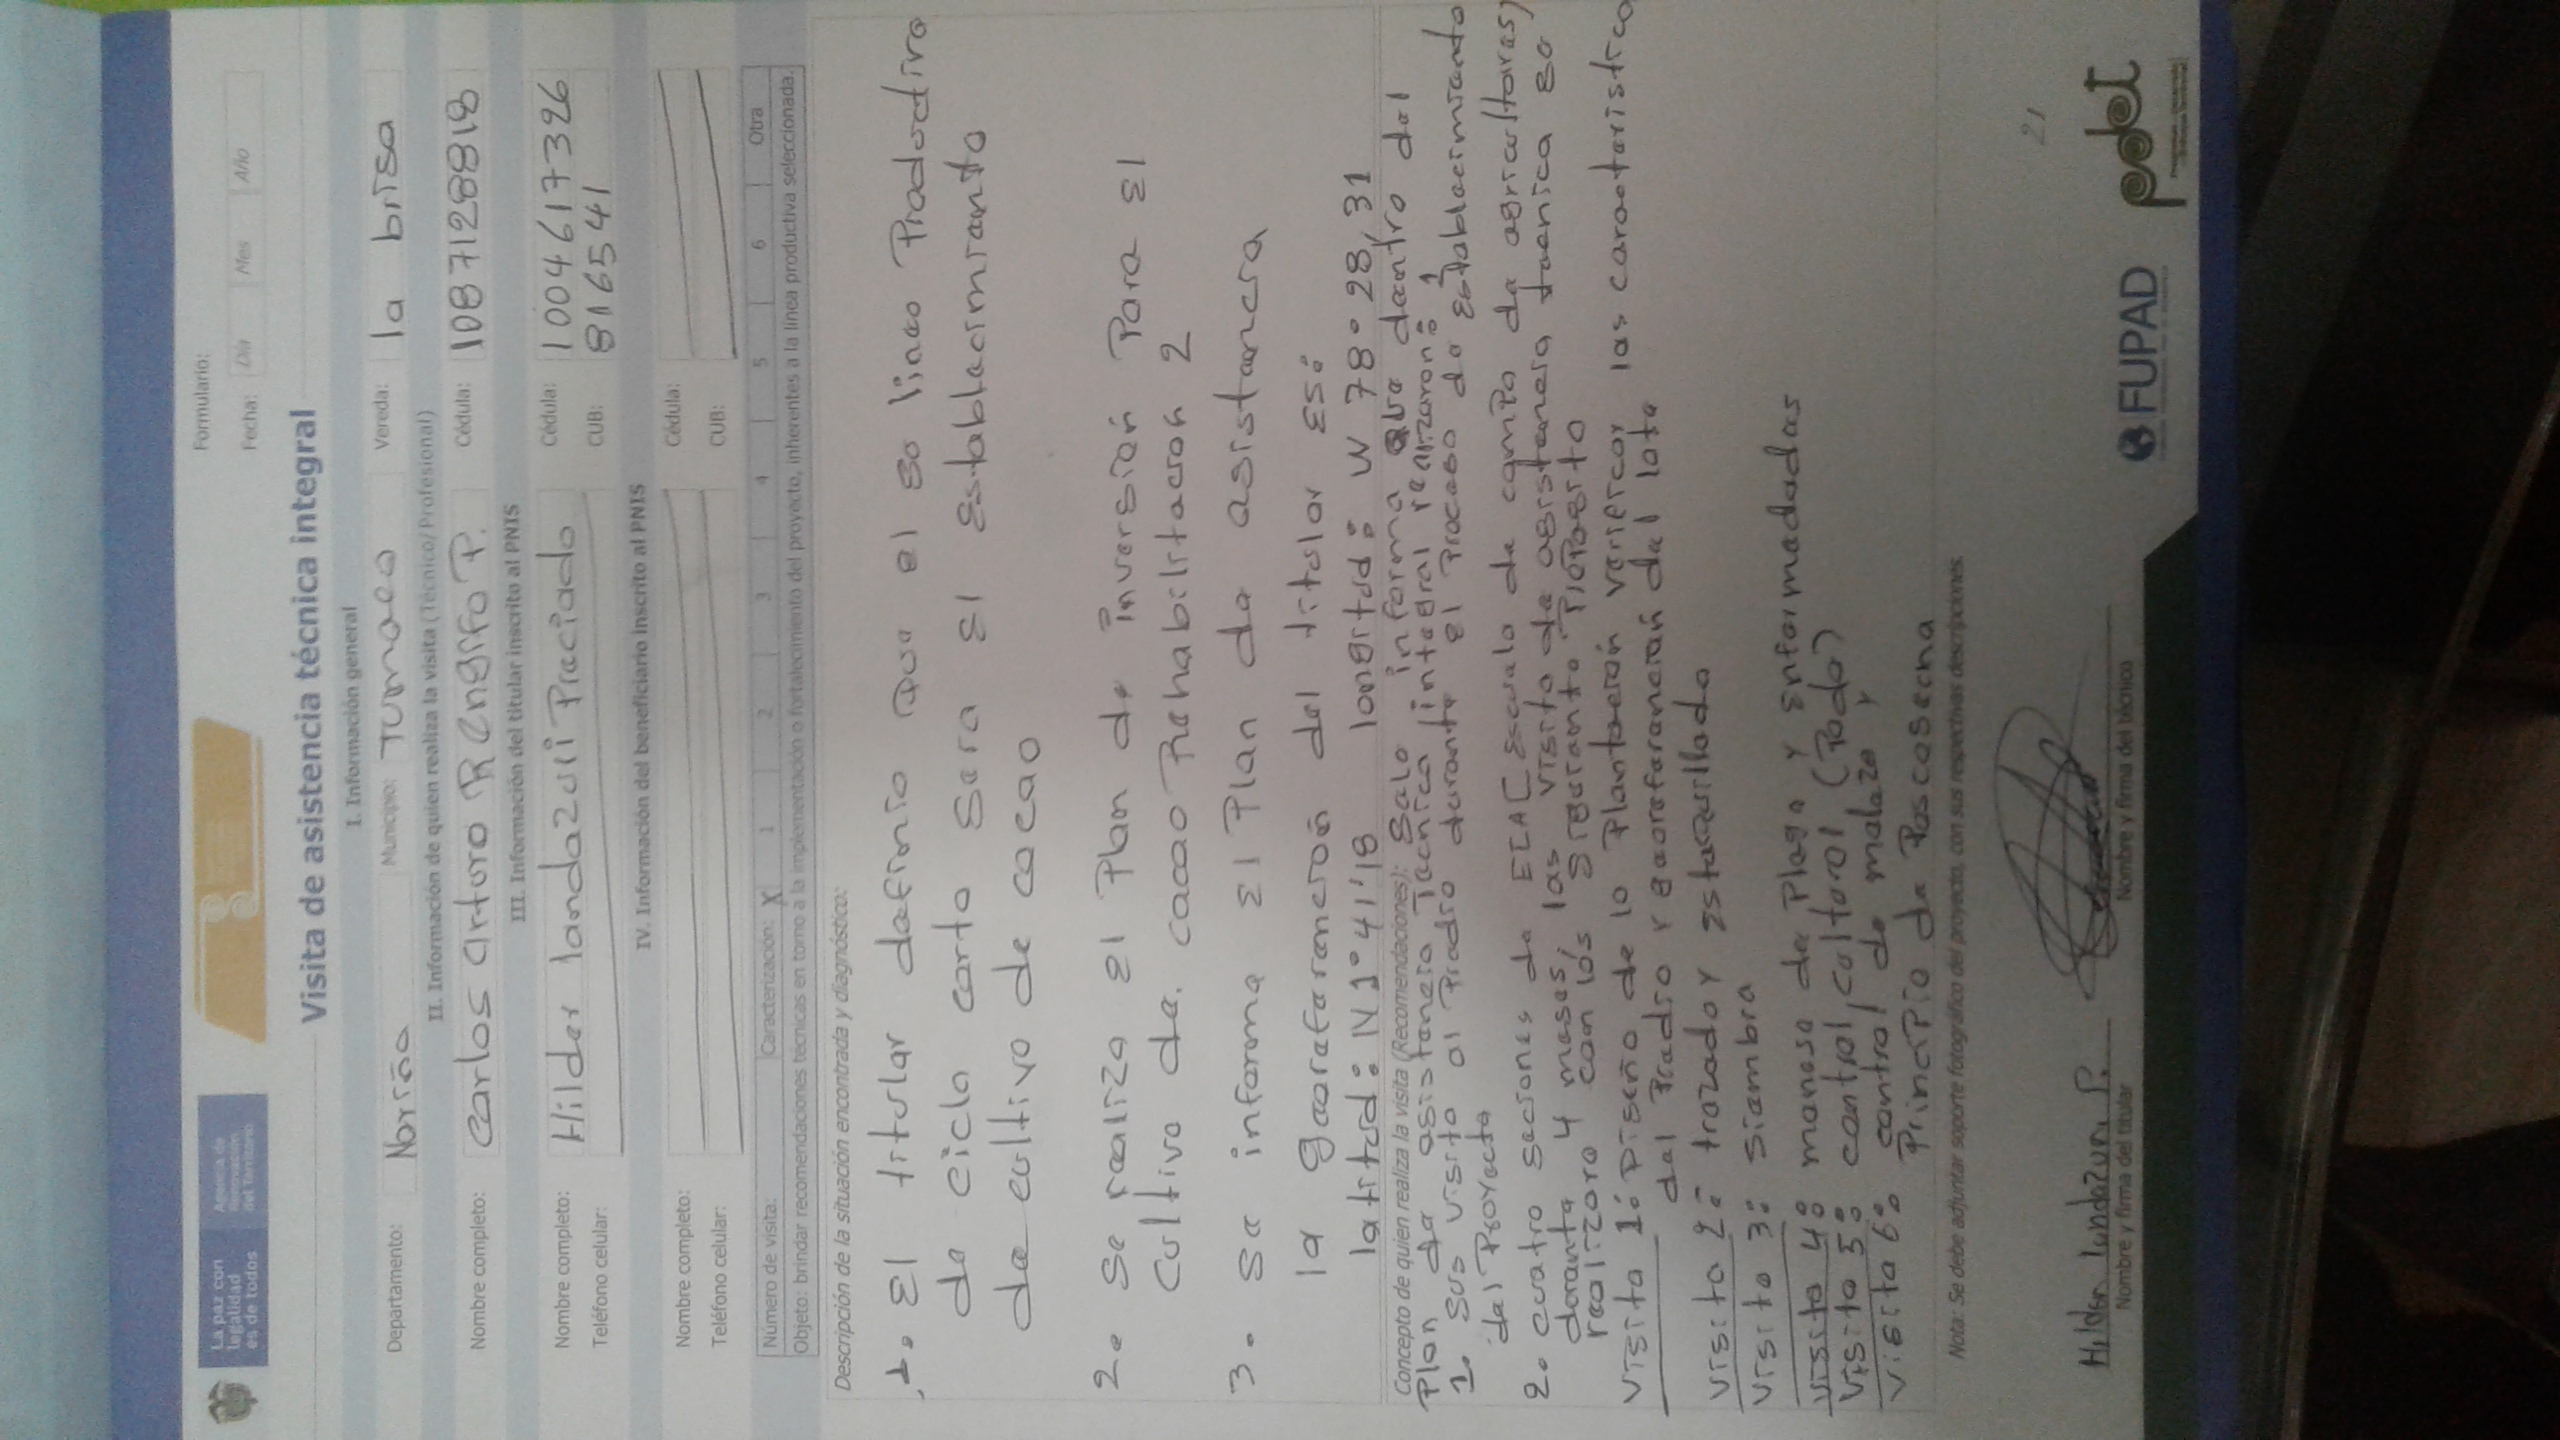 La paz con
legalidad
es de todos
Agencia de
Renovación
del Territorio
Formulario:
Fecha: Día Mes Año
Visita de asistencia técnica integral
I. Información general
Departamento: Nariño Municipio: Tumaco Vereda: la brisa
II. Información de quien realiza la visita (Técnico/Profesional)
Nombre completo: Carlos Arturo Rengifo P. Cédula: 1087128818
III. Información del titular inscrito al PNIS
Nombre completo: Hilder landazuri Preciado Cédula: 1004617326
Teléfono celular: CUB: 816541
IV. Información del beneficiario inscrito al PNIS
Nombre completo: Cédula:
Teléfono celular: CUB:
Número de visita: Caracterización: X 1 2 3 4 5 6 Otra
Objeto: brindar recomendaciones técnicas en torno a la implementación o fortalecimiento del proyecto, inherentes a la línea productiva seleccionada.
Descripción de la situación encontrada y diagnóstico:
1. El titular definio que el so linea Productiva
de ciclo corto sera El Establecimiento
de cultivo de cacao
2. Se realiza El Plan de inversión Para El
Cultivo de. cacao Rehabilitacion 2
3. Se informa El Plan de asistencia
la georeferencion del titular es:
latitud: N 1° 41'18 longitud: W 78° 28, 31
Concepto de quien realiza la visita (Recomendaciones): Sele informa que dentro del
Plan de asistencia Tecnica integral realizaron: 1
1. sus visita al Predio durante El Proceso de Establecimiento
del Proyecto
2. cuatro seciones de ECAC Escuela de campo de agricultoras)
durante 4 meses, las visita de asistencia tecnica se
realizara con los siguiente Proposito
Visita 1: Diseño de lo Plantacion verificar las caracteristica
del Predio y georeferencion del lote
Visita 2: trazado y estaquillado
Visita 3: siembra
Visita 4: manejo de Plaga y Enfermedades
Visita 5: control cultural (Poda)
control de maleza y
Visita 6: Principio de Poscosecha
Nota: Se debe adjuntar soporte fotográfico del proyecto, con sus respectivas descripciones.
Hilder landazuri P.
Nombre y firma del titular
Nombre y firma del técnico
21
FUPAD
pdet